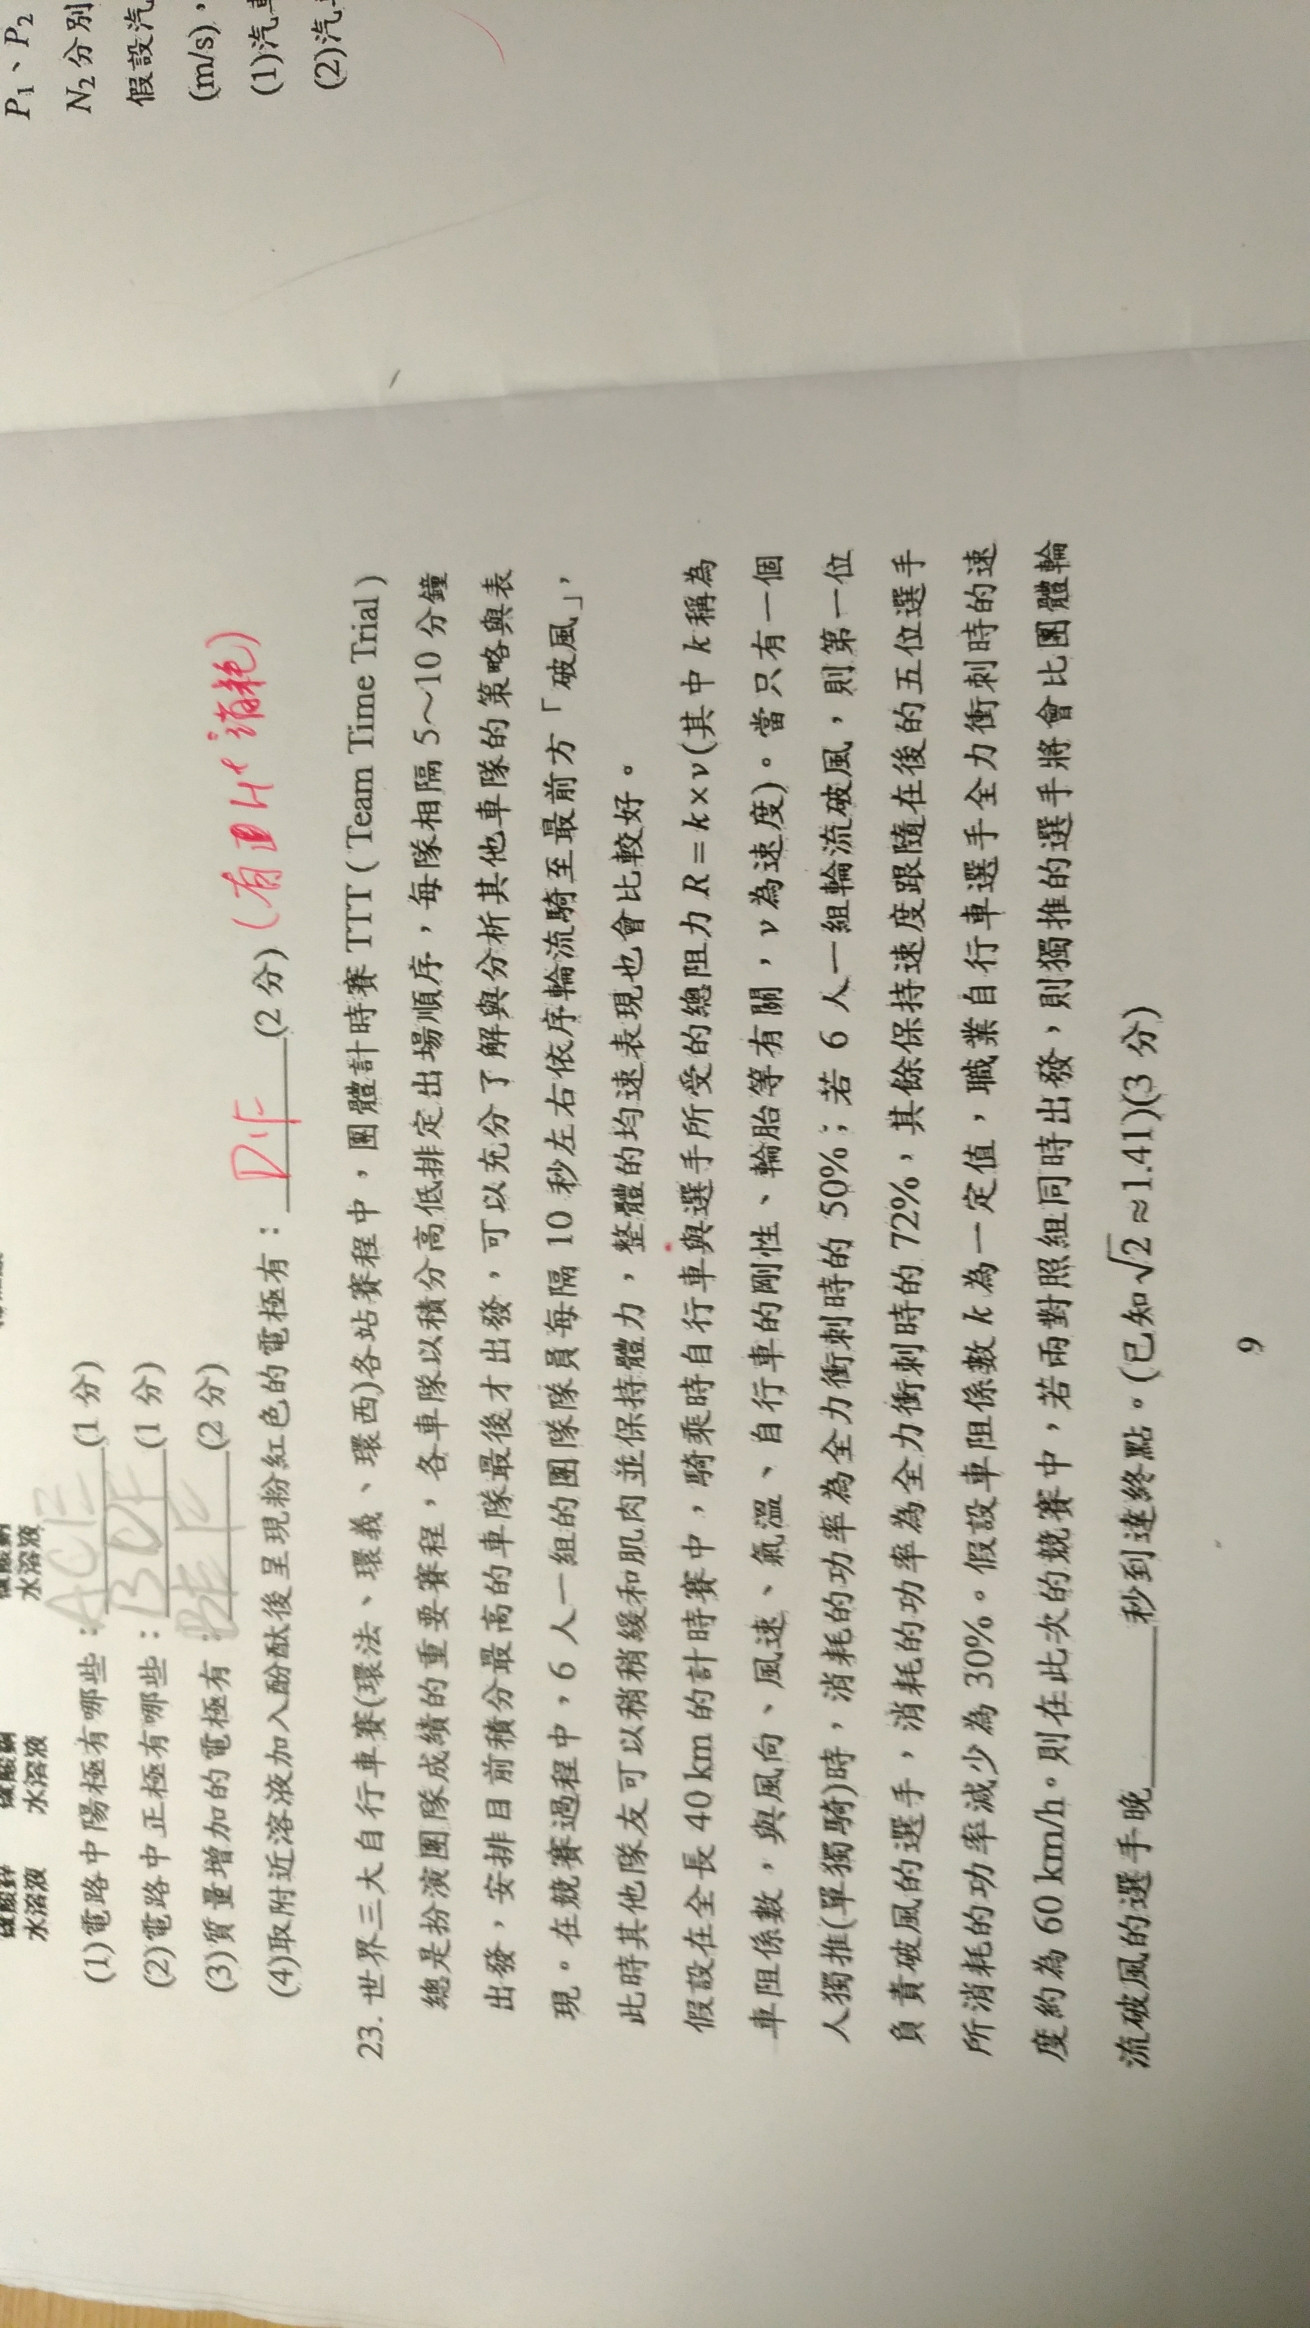 硫酸鋅
水溶液
水溶液
水溶液
(1)電路中陽極有哪些：ACE(1 分)
(2)電路中正極有哪些：BDF(1 分)
(3)質量增加的電極有：BF(2 分)
(4)取附近溶液加入酚酞後呈現粉紅色的電極有：D、F(2 分)(有H⁺消耗)
23. 世界三大自行車賽(環法、環義、環西)各站賽程中，團體計時賽 TTT ( Team Time Trial )
總是扮演團隊成績的重要賽程，各車隊以積分高低排定出場順序，每隊相隔 5～10 分鐘
出發，安排目前積分最高的車隊最後才出發，可以充分了解與分析其他車隊的策略與表
現。在競賽過程中，6 人一組的團隊隊員每隔 10 秒左右依序輪流騎至最前方「破風」，
此時其他隊友可以稍稍緩和肌肉並保持體力，整體的均速表現也會比較好。
假設在全長 40 km 的計時賽中，騎乘時自行車與選手所受的總阻力 R = k × v (其中 k 稱為
車阻係數，與風向、風速、氣溫、自行車的剛性、輪胎等有關，v 為速度)。當只有一個
人獨推(單獨騎)時，消耗的功率為全力衝刺時的 50%；若 6 人一組輪流破風，則第一位
負責破風的選手，消耗的功率為全力衝刺時的 72%，其餘保持速度跟隨在後的五位選手
所消耗的功率減少為 30%。假設車阻係數 k 為一定值，職業自行車選手全力衝刺時的速
度約為 60 km/h。則在此次的競賽中，若兩對照組同時出發，則獨推的選手將會比團體輪
流破風的選手晚______秒到達終點。(已知 √2 ≈ 1.41)(3 分)
9
P₁、P₂
N₂分別
假設汽
(m/s)，
(1)汽車
(2)汽